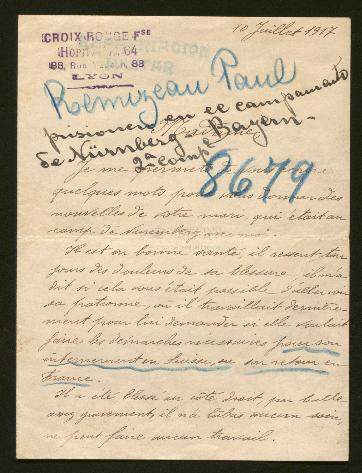 10 Juillet 1917
CROIX-ROUGE Fse
HOPITAL 64
88, Rue 88
LYON
Remizeau Paul
prisionero en el campamento
de Nürnberg - Bayern -
2ª comp.
8679
Madame
Je me permets
quelques mots pour vous donner des
nouvelles de votre mari, qui était au
camp de Nuremberg avec moi.
Il est en bonne santé, il ressent tou
jours des douleurs de sa blessure, il m'a
dit si cela vous était possible d'aller voir
sa patronne, où il travaillait dernière-
ment pour lui demander si elle voulait
faire les démarches nécessaires pour son
internement en Suisse, ou son retour en
France.
Il a été blessé au côté droit par balle
assez gravement, il n'a bras aucun
ne peut faire aucun travail.